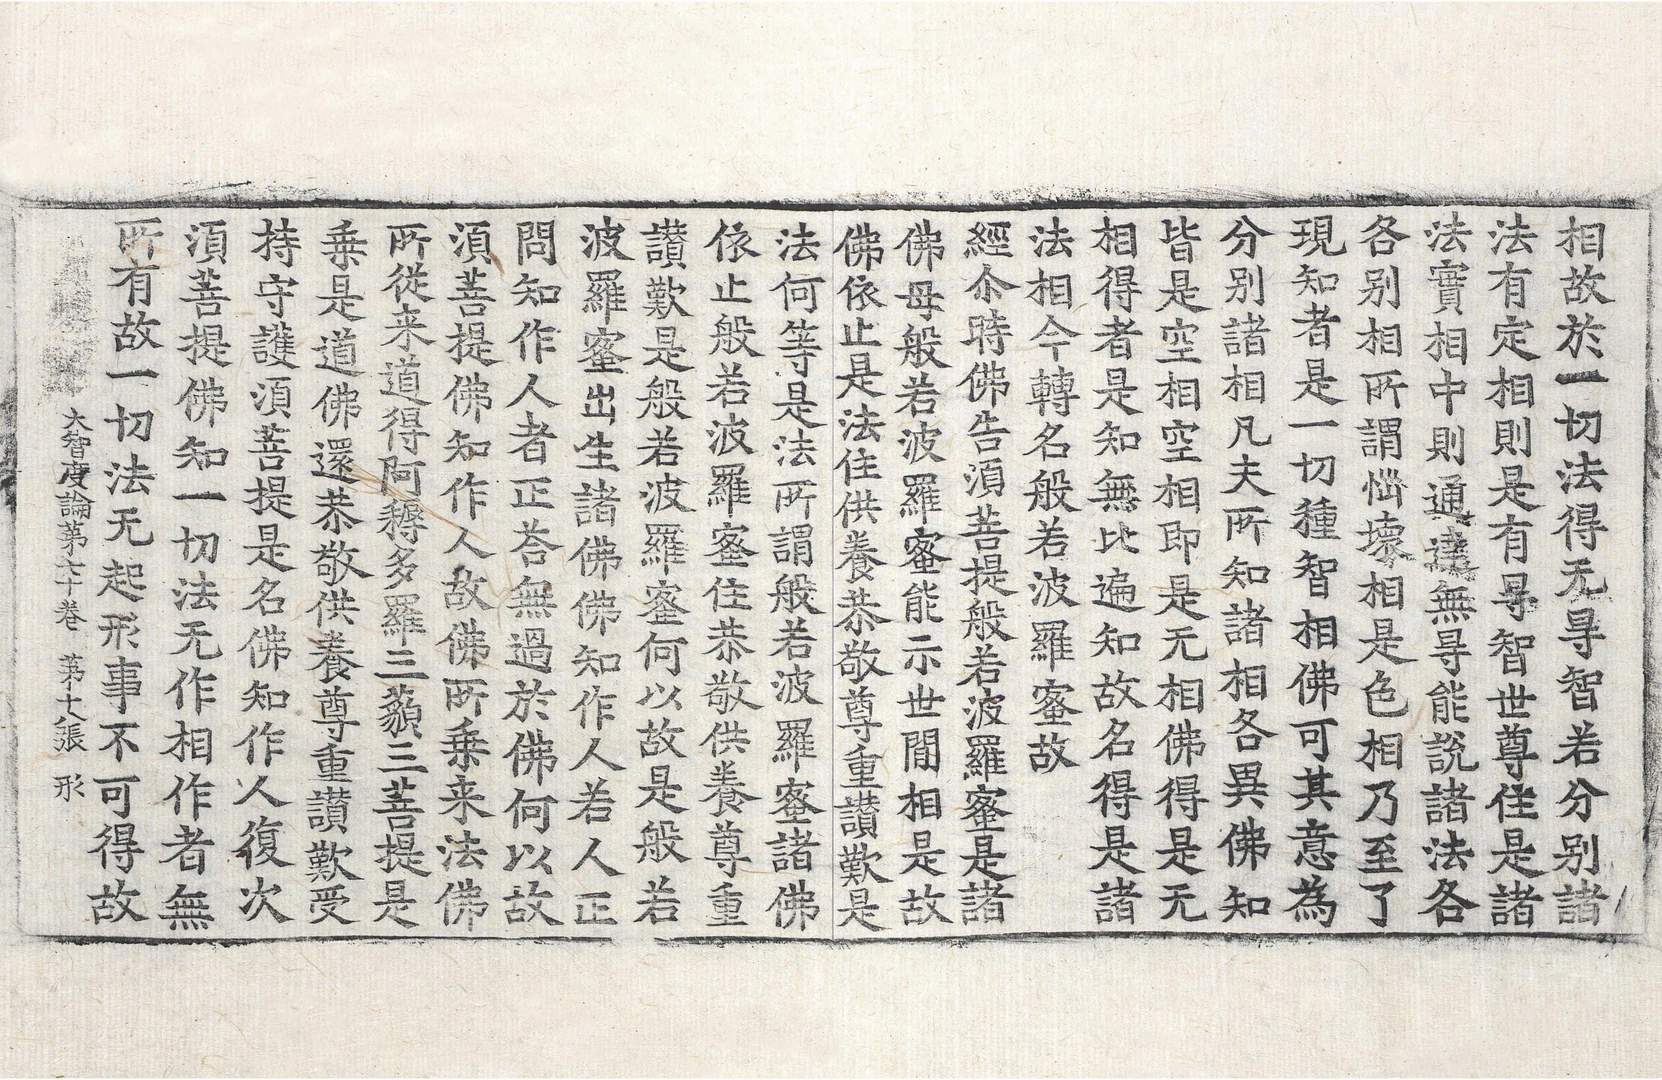 相故於一切法得无㝵智若分別諸
法有定相則是有㝵智世尊住是諸
法實相中則通達無㝵能說諸法各
各別相所謂惱壞相是色相乃至了
現知者是一切種智相佛可其意為
分別諸相凡夫所知諸相各異佛知
皆是空相空相即是无相佛得是无
相得者是知無比遍知故名得是諸
法相今轉名般若波羅蜜故
經尒時佛告湏菩提般若波羅蜜是諸
佛母般若波羅蜜能示世閒相是故
佛依止是法住供養恭敬尊重讃歎是
法何等是法所謂般若波羅蜜諸佛
依止般若波羅蜜住恭敬供養尊重
讃歎是般若波羅蜜何以故是般若
波羅蜜出生諸佛佛知作人若人正
問知作人者正荅無過於佛何以故
湏菩提佛知作人故佛所乗来法佛
所從来道得阿耨多羅三藐三菩提是
乗是道佛還恭敬供養尊重讃歎受
持守護湏菩提是名佛知作人復次
湏菩提佛知一切法无作相作者無
所有故一切法无起形事不可得故
大智度論第六十卷 第十八張 形